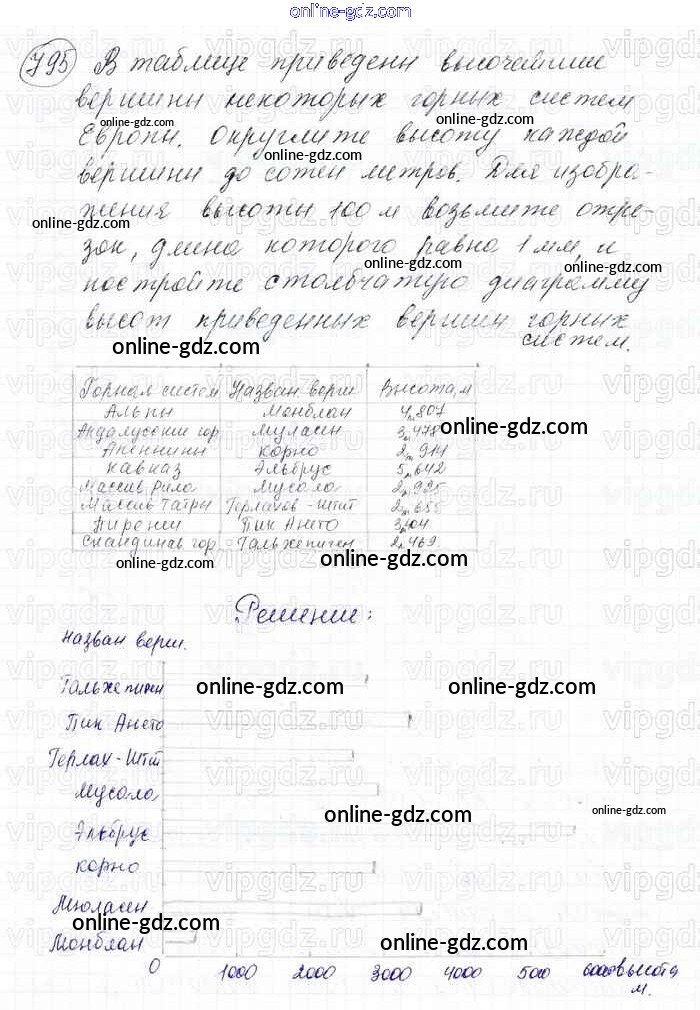 online-gdz.com
795 В таблице приведены высочайшие
вершины некоторых горных систем
Европы. Округлите высоту каждой
вершины до сотен метров. Для изобра-
жения высоты 100 м возьмите отре-
зок, длина которого равна 1 мм, и
постройте столбчатую диаграмму
высот приведенных вершин горных
систем.
Горная систем Назван. верш Высота, м
Альпы Монблан 4 807
Андалусские гор Муласен 3 478
Апеннины Корно 2 914
Кавказ Эльбрус 5 642
Массив Рила Мусала 2 925
Массив Татры Герлахов-Штит 2 655
Пиренеи Пик Ането 3 404
Скандинав гор Гальхепиген 2 469
Решение:
Назван верш.
Гальхепиген
Пик Ането
Герлах-Штит
Мусала
Эльбрус
Корно
Мюласен
Монблан
0 1000 2000 3000 4000 5000 6000 высота
м.